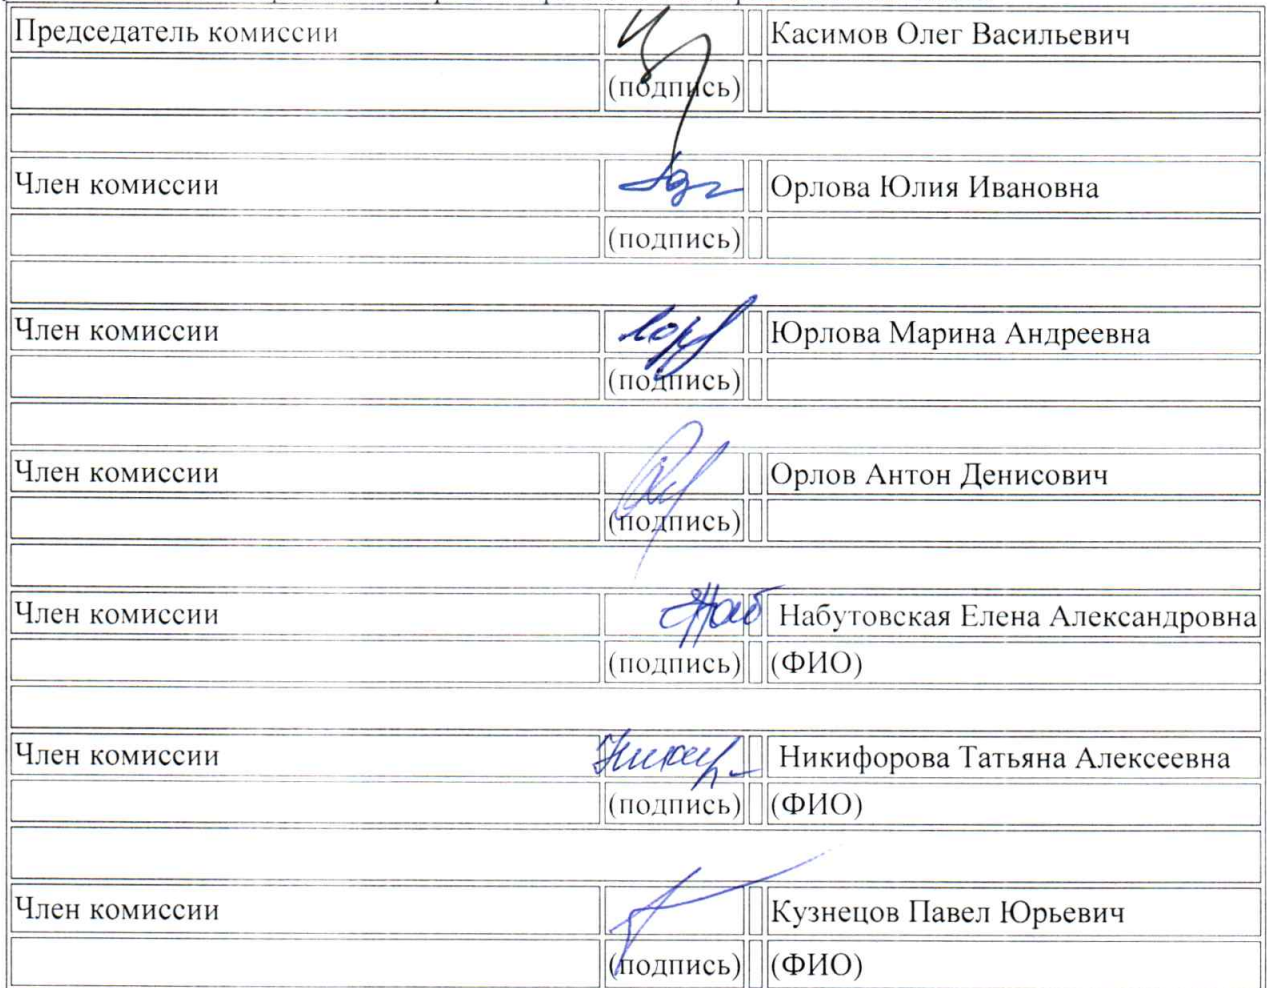 Председатель комиссии Касимов Олег Васильевич
(подпись)
Член комиссии Орлова Юлия Ивановна
(подпись)
Член комиссии Юрлова Марина Андреевна
(подпись)
Член комиссии Орлов Антон Денисович
(подпись)
Член комиссии Набутовская Елена Александровна
(подпись) (ФИО)
Член комиссии Никифорова Татьяна Алексеевна
(подпись) (ФИО)
Член комиссии Кузнецов Павел Юрьевич
(подпись) (ФИО)